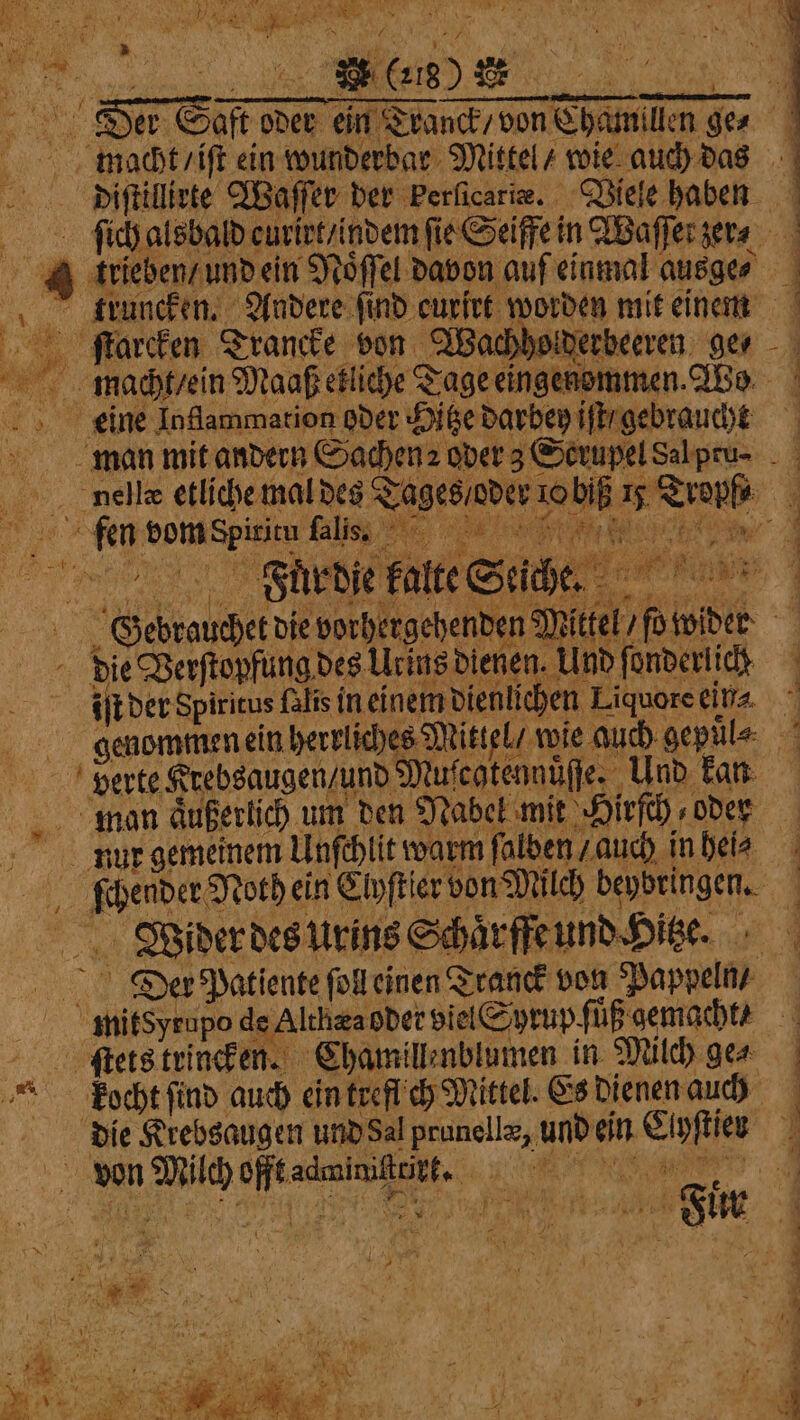 (218)
Der Saft oder ein Tranck/ von Chamillen ge⸗
macht / iſt ein wunderbar Mittel / wie auch das
diſtillirte Waſſer der Perſicariæ. Viele haben
ſich alsbald curirt/ indem ſie Seiffe in Waſſer zer⸗
trieben/ und ein Noͤſſel davon auf einmal ausge⸗
truncken. Andere ſind curirt worden mit einem
ſtarcken Trancke von Wachholderbeeren ge⸗
macht/ ein Maaß etliche Tage eingenommen. Wo
eine Inflammation oder Hitze darbey iſt/ gebraucht
man mit andern Sachen 2 oder 3 Scrupel Sal pru-
nellæ etliche mal des Tages/ oder 10 biß 15 Tropf⸗
fen vom Spiritu ſalis.
Fuͤr die kalte Seiche.
Gebrauchet die vorhergehenden Mittel / ſo wider
die Verſtopfung des Urins dienen. Und ſonderlich
iſt der Spiritus ſalis in einem dienlichen Liquore ein⸗
genommen ein herrliches Mittel/ wie auch gepuͤl⸗
verte Krebsaugen/ und Muſcatennuͤſſe. Und kan
man aͤußerlich um den Nabel mit Hirſch ⸗ oder
nur gemeinem Unſchlit warm ſalben / auch in hei⸗
ſchender Noth ein Clyſtier von Milch beybringen.
Wider des Urins Schaͤrffe und Hitze.
Der Patiente ſoll einen Tranck von Pappeln/
mit Syrupo de Althæa oder viel Syrup ſuͤß gemacht/
ſtets trincken. Chamillenblumen in Milch ge⸗
kocht ſind auch ein trefl ch Mittel. Es dienen auch
die Krebsaugen und Sal prunellæ, und ein Clyſtier
von Milch offt adminiſtrirt.
Fuͤr